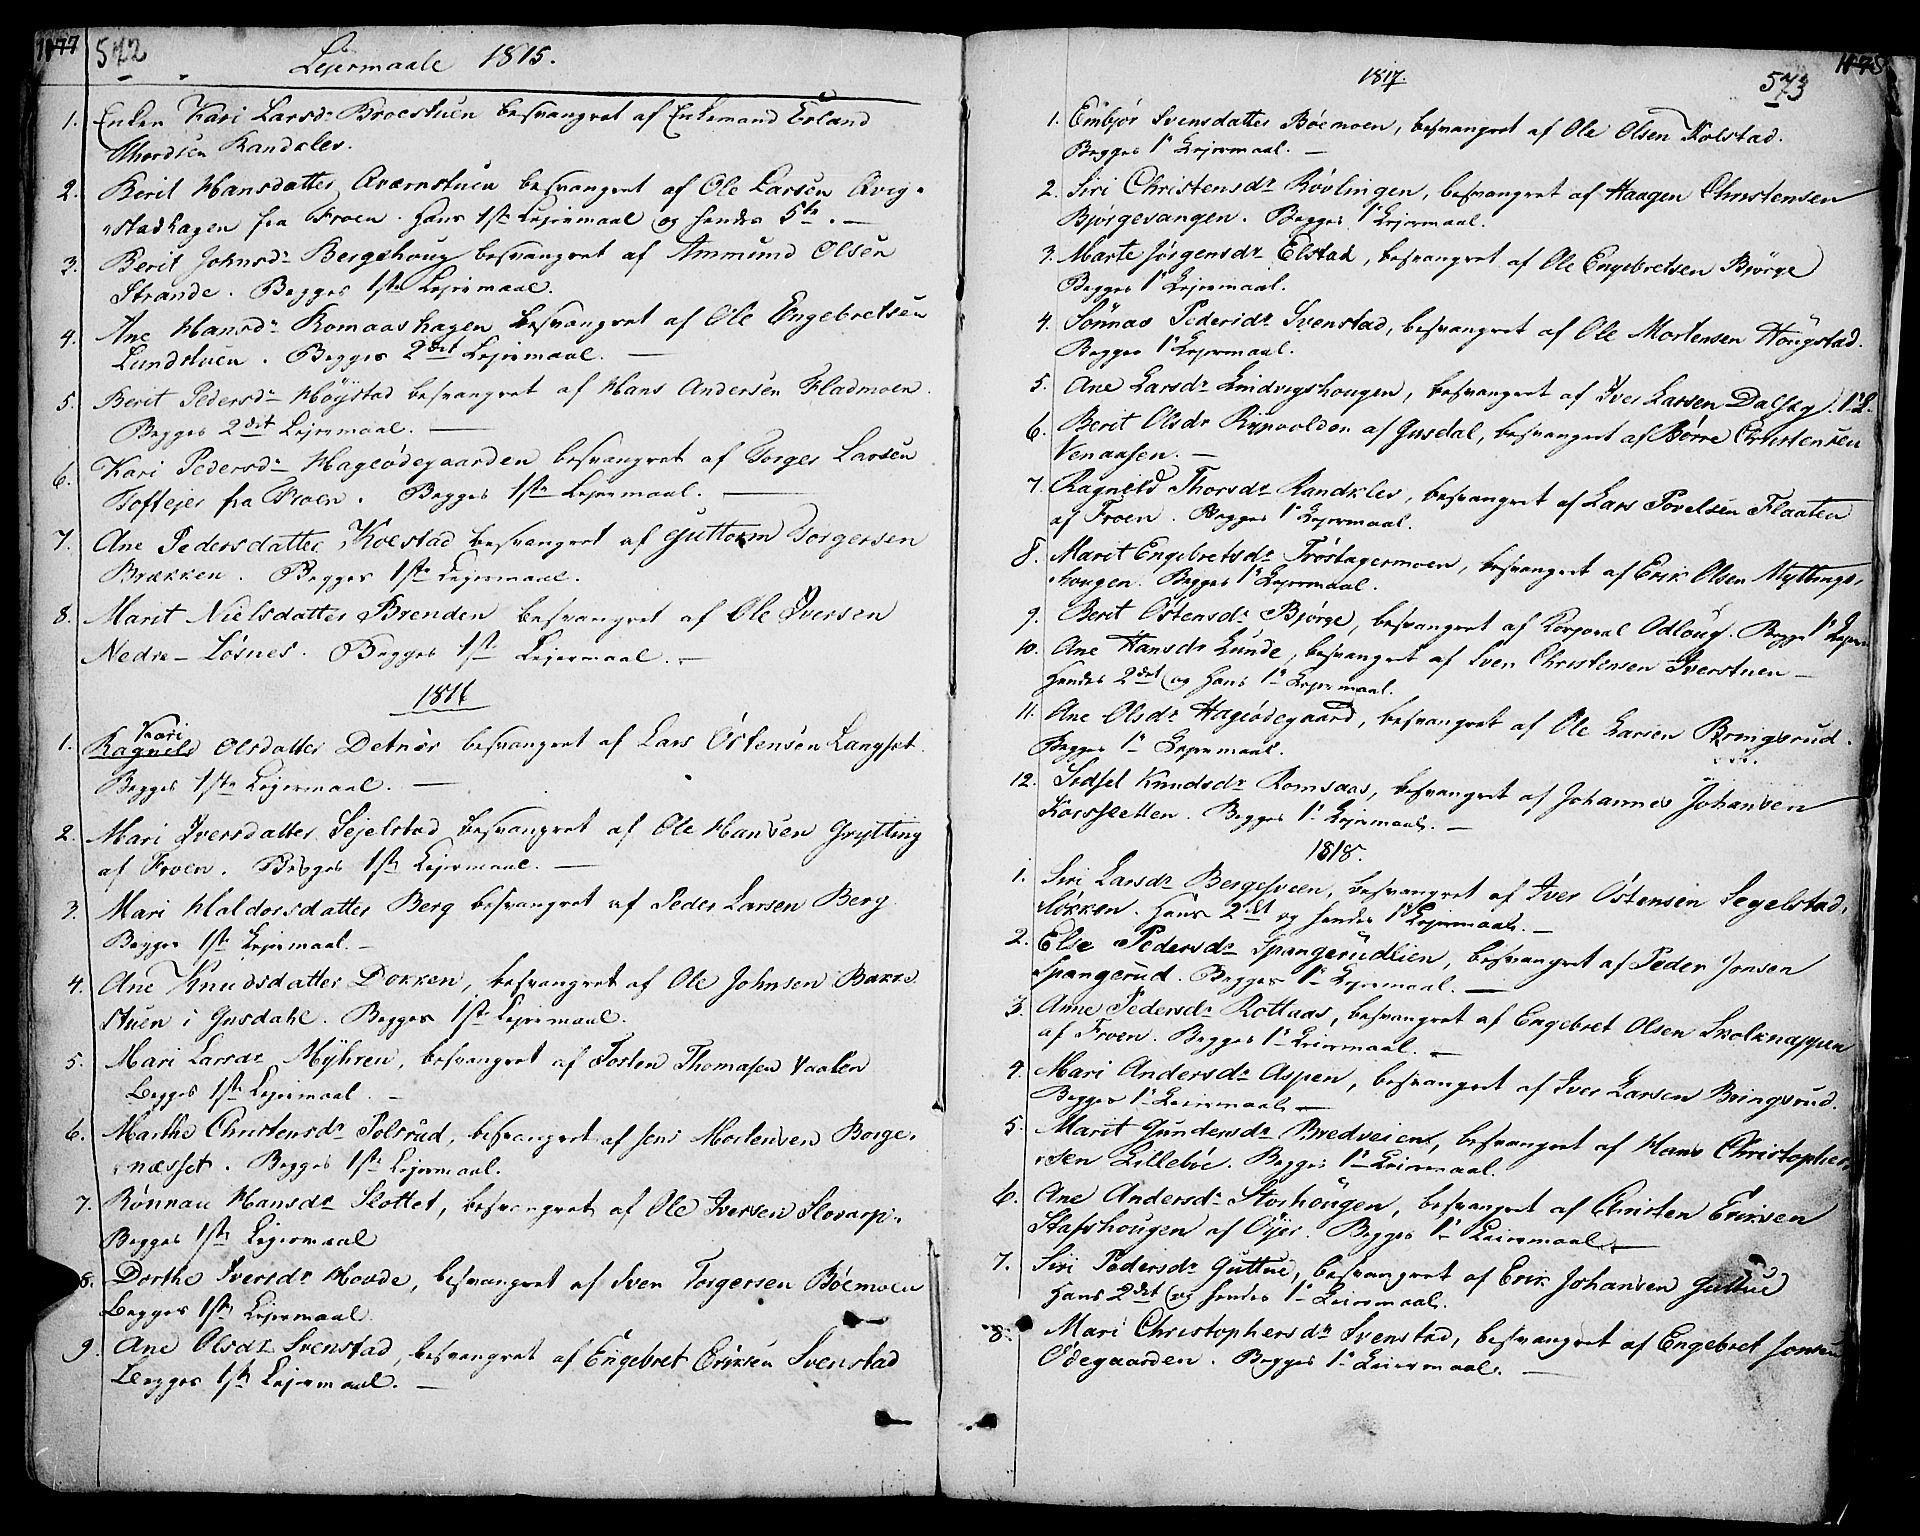 1077 572 Lejermaale 1815.
1. Enken Kari Larsd: Broestuen besvangret af Enkemand Erland
Thordsen Randklev.
2. Berit Hansdatter Qværnstuen besvangret af Ole Larsen Qvig-
stadhagen fra Froen. Hans 1ste Lejermaal og hendes 5te. —
3. Berit Johnsd: Bergshoug besvangret af Ammund Olsen
Strande. Begges 1ste Lejermaal.
4. Ane Hansd: Romaashagen besvangret af Ole Engebretsen
Lundstuen. Begges 2det Lejermaal. —
5. Berit Pedersd: Höÿstad besvangret af Hans Andersen Fladmoen.
Begges 2det Lejermaal. —
6. Kari Pedersd: Hageödegaarden besvangret af Torger Larsen
Toftejer fra Froen. Begges 1ste Lejermaal. —
7. Ane Pedersdatter Koestad besvangret af Guttorm Torgersen
Brækken. Begges 1ste Lejermaal.
8. Marit Nielsdatter Brenden besvangret af Ole Iversen
Nedre-Lösnes. Begges 1ste Lejermaal. —
1816
Kari
1. Ragnild Olsdatter Detnör besvangret af Lars Östensen Langset.
Begges 1ste Lejermaal. —
2. Mari Iversdatter Sejelstad besvangret af Ole Hansen Grytting
af Froen. Begges 1ste Lejermaal. —
3. Mari Haldorsdatter Berg besvangret af Peder Larsen Berg
Begges 1ste Lejermaal. —
4. Ane Knudsdatter Dokken, besvangret af Ole Johnsen Bakke
stuen i Gusdahl. Begges 1ste Lejermaal.
5. Mari Larsdr Mÿhren, besvangret af Torsten Thomasen Vaalen
Begges 1ste Lejermaal. —
6. Marthe Christensdr Polsrud, besvangret af Jens Mortensen Borge-
næsset. Begges 1ste Lejermaal.
7. Rönnau Hansdr Slottet, besvangret af Ole Iversen Slovarp.
Begges 1ste Lejermaal
8. Dorthe Iversdr Hovde, besvangret af Sven Torgersen Böemoen
Begges 1ste Lejermaal.
9. Ane Olsdr Svenstad, besvangret af Engebret Eriksen Svenstad
Begges 1ste Lejermaal. —
1817. 573
1. Embjör Svensdatter Böemoen, besvangret af Ole Olsen Kolstad.
Begges 1e Lejermaal. —
2. Siri Christensdr Rövlingen, besvangret af Haagen Christensen
Bjørgevangen. Begges 1e Lejermaal.
3. Marte Jörgensdr Elstad, besvangret af Ole Engebretsen Bjørge
Begges 1e Lejermaal.
4. Sönnau Pedersdr Svenstad, besvangret af Ole Mortensen Höugstad.
Begges 1e Lejermaal.
5. Ane Larsdr Lindvigshougen, besvangret af Iver Larsen Dalseg. 1e L.
6. Berit Olsdr af Gusdal, besvangret af Börre Christensen
Venaasen. —
7. Ragneld Thorsdr Randklev, besvangret af Lars Povelsen Flaaten
af Froen. Begges 1e Lejermaal.
8. Marit Engebretsdr Tröstagermoen, besvangret af Erik Olsen Myttings-
hougen. Begges 1e Lejermaal.
9. Berit Östensdr Bjørge, besvangret af Korporal Odloug. Begges 1e Lejerm
10. Ane Hansdr Lunde, besvangret af Sven Christensen Iverstuen —
hendes 2det og hans 1e Lejermaal.
11. Ane Olsdr Hageödegaard, besvangret af Ole Larsen Bringsrud.
Begges 1e Lejermaal.
12. Sidsel Knudsdr Romsaas, besvangret af Johannes Johansen
Korssletten. Begges 1e Lejermaal. —
1818.
1. Siri Larsdr Bergesveen, besvangret af Iver Östensen Segelstad-
lökken. Hans 2det og hendes 1e Lejermaal. —
2. Else Pedersdr Spangerudlien, besvangret af Peder Jonsen
Spangerud. Begges 1e Lejermaal. —
3. Anne Pedersdr Rottaas, besvangret af Engebret Olsen Skolknappen
af Froen. Begges 1e Leiermaal. —
4. Mari Andersdr Aspen, besvangret af Iver Larsen Bringsrud.
Begges 1e Leiermaal. —
5. Marit Gundersdr Bredveien, besvangret af Hans Christopher-
sen Lillebøe. Begges 1e Leiermaal.
6. Ane Andersdr Storhougen, besvangret af Christen Eriksen
Stafshougen af Öjer. Begges 1e Leiermaal. —
7. Siri Pedersdr Guttue, besvangret af Erik Johansen Guttue
Hans 2det og hendes 1e Leiermaal.
8. Mari Christophersdr Svenstad, besvangret af Engebret Jonsen
Ödegaarden. Begges 1e Leiermaal. —